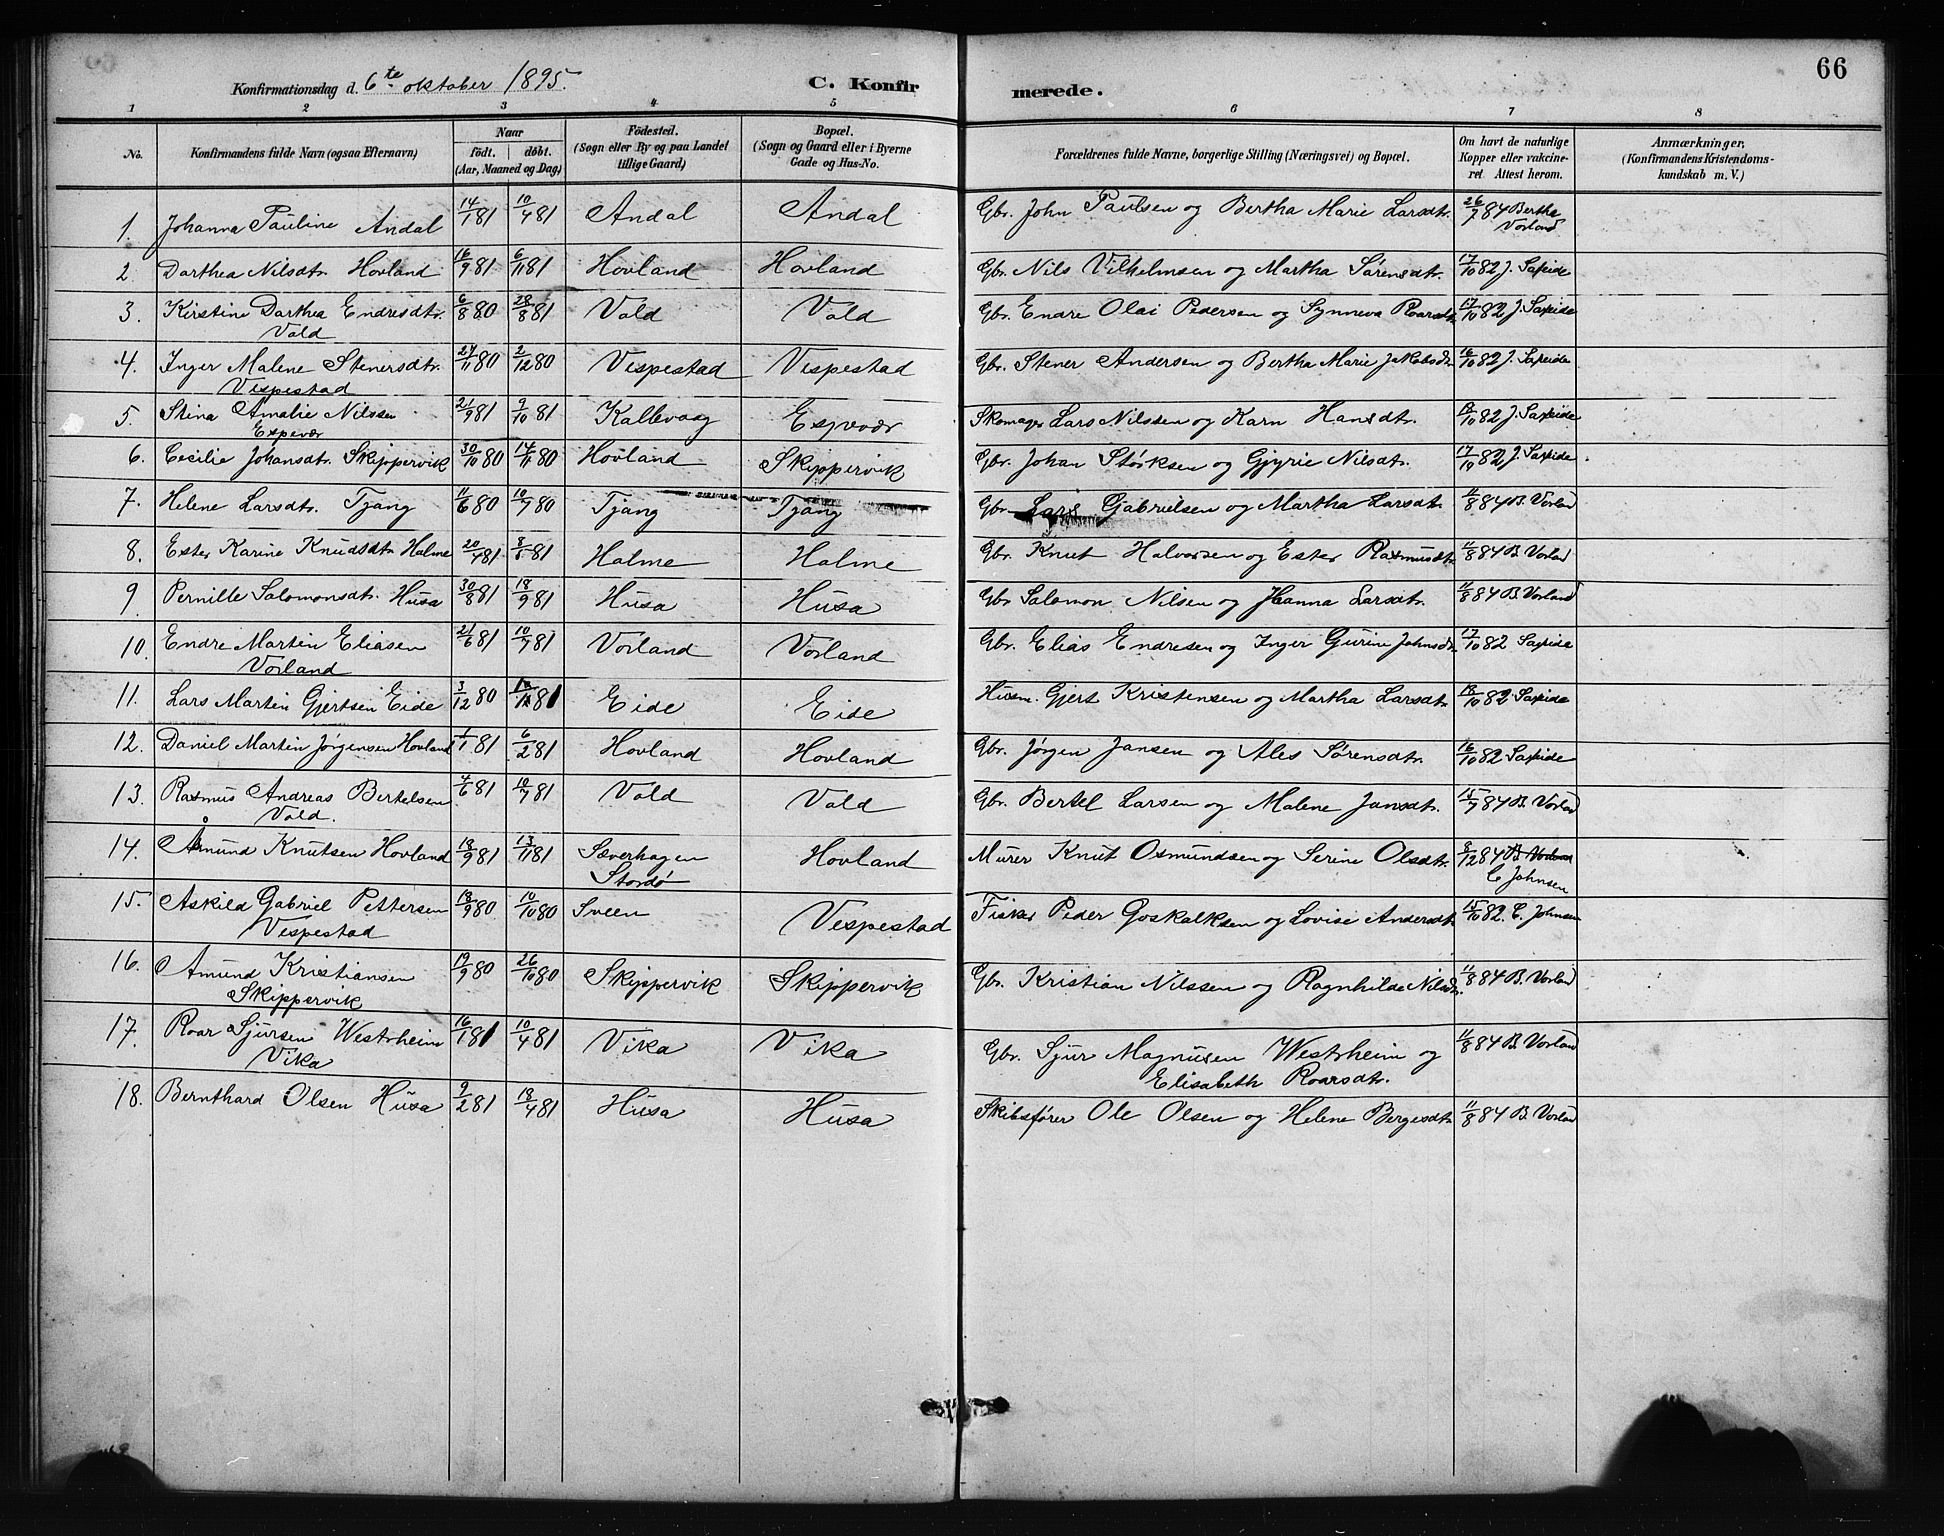 66
Konfirmationsdag d. 6te oktober 1895. C. Konfirmerede.
1 2 3 4 5 6 7 8
No. Konfirmandens fulde Navn (ogsaa Efternavn) Naar födt. döbt. (Aar, Maaned og Dag) Födested. (Sogn eller By og paa Landet tillige Gaard) Bopæl. (Sogn og Gaard eller i Byerne Gade og Hus-No. Forældrenes fulde Navne, borgerlige Stilling (Næringsvei) og Bopæl. Om havt de naturlige Kopper eller vakcineret Attest herom. Anmærkninger, (Konfirmandens Kristendomskundskab m. V.)
1. Johanna Pauline Andal 14/1 81 10/4 81 Andal Andal Gbr. John Paulsen og Bertha Marie Larsdtr. 26/7 84 Bertha Vorland
2. Darthea Nilsdtr. Hovland 16/9 81 6/11 81 Hovland Hovland Gbr. Nils Vilhelmsen og Martha Sørensdtr. 17/10 82 J. Saxeide
3. Kirstine Darthea Endresdtr. Vold 6/8 80 28/8 81 Vold Vold Gbr. Endre Olai Pedersen og Synneva Roarsdtr. 17/10 82 J. Saxeide
4. Inger Malene Stenersdtr. Vespestad 24/11 80 2/12 80 Vespestad Vespestad Gbr. Stener Andersen og Bertha Marie Jakobsdtr. 16/10 82 J. Saxeide
5. Stina Amalie Nilssen Espevær 21/9 81 9/10 81 Kallevaag Espevær Skomager Lars Nilssen og Karn Hansdtr. 18/10 82 J. Saxeide
6. Cecilie Johansdtr. Skippervik 30/10 80 14/11 80 Hovland Skippervik Gbr. Johan Størksen og Gjyrie Nilsdtr. 17/10 82 J. Saxeide.
7. Helene Larsdtr. Tjong 11/6 80 10/7 80 Tjong Tjong Gbr. Lars Gabrielsen og Martha Larsdtr. 11/8 84 B. Vorland
8. Ester Karine Knudsdtr. Holme 20/4 81 8/5 81 Holme Holme Gbr. Knut Halvorsen og Ester Rasmusdtr. 11/8 84 B. Vorland
9 Pernille Salomonsdtr. Husa 30/8 81 18/9 81 Husa Husa Gbr Salomon Nilsen og Hanna Larsdtr. 11/8 84 B. Vorland
10. Endre Martin Eliasen Vorland 21/6 81 10/7 81 Vorland Vorland Gbr. Elias Endresen og Inger Gurine Johnsdtr. 17/10 82 Saxeide
11. Lars Martin Gjertsen Eide 3/12 80 81 Eide Eide Husm. Gjert Kristensen og Martha Larsdtr. 18/10 82 Saxeide
12. Daniel Martin Jørgensen Hovland 1/1 81 6/2 81 Hovland Hovland Gbr. Jørgen Jansen og Ales Sørensdtr. 16/10 82 Saxeide
13. Rasmus Andreas Bertelsen Vold. 4/6 81 10/7 81 Vold Vold Gbr. Bertel Larsen og Malene Jansdtr. 15/7 84 B. Vorland
14. Åmund Knutsen Hovland 18/9 81 13/11 81 Sæverhagen Stordø Hovland Murer Knut Osmundsen og Serine Olsdtr. 8/12 84 B. Vorland C. Johnsen
15. Askild Gabriel Pettersen Vespestad 18/9 80 10/10 80 Sveen Vespestad Fisker Peder Goskalksen og Lovise Andersdtr. 15/10 82. C. Johnsen
16. Amund Kristiansen Skippervik 19/9 80 26/10 80 Skippervik Skippervik Gbr. Kristian Nilssen og Ragnhilde Nilsdtr. 11/8 84 B. Vorland
17. Roar Sjursen Westrheim Vika 16/1 81 10/4 81 Vika Vika Gbr. Sjur Magnusen Westrheim og Elisabeth Roarsdtr. 11/8 84 B. Vorland
18. Bernthard Olsen Husa 9/2 81 18/4 81 Husa Husa Skibsfører Ole Olsen og Helene Bergesdtr. 11/8 84 B. Vorland